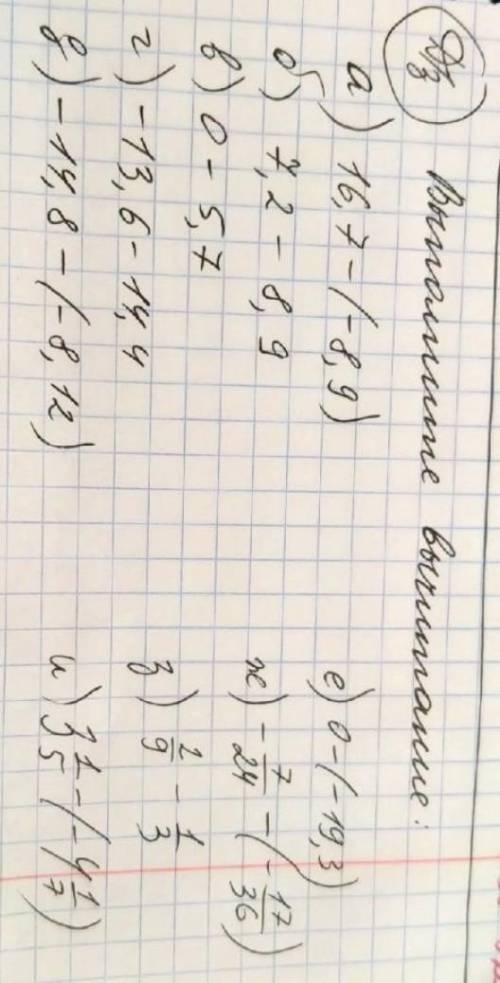 Дз Выполните вычитание:
а) 16,7 - (-8,9)
б) 7,2 - 8,9
в) 0 - 5,7
г) -13,6 - 14,4
д) -14,8 - (-8,12)
е) 0 - (-19,3)
ж) -7/24 - (-17/36)
з) 2/9 - 1/3
и) 3 1/5 - (-4 1/7)